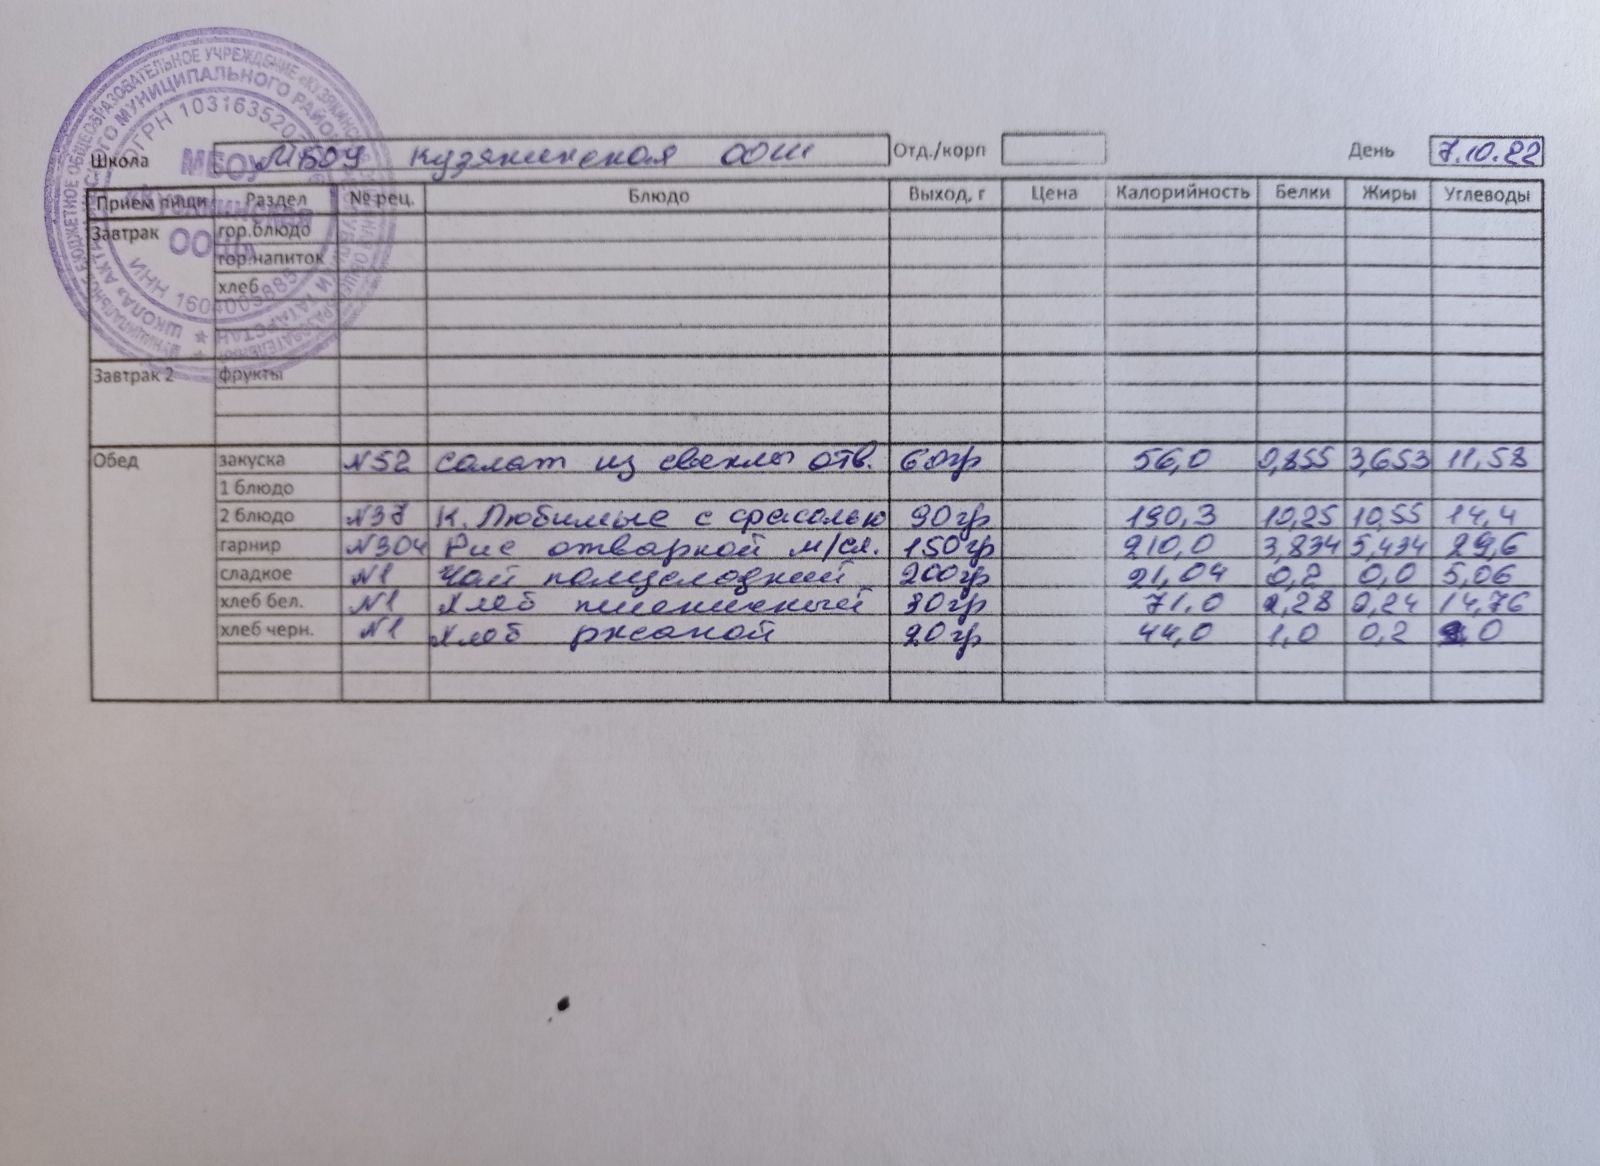 МУНИЦИПАЛЬНОЕ БЮДЖЕТНОЕ ОБЩЕОБРАЗОВАТЕЛЬНОЕ УЧРЕЖДЕНИЕ «КУЗЯКИНСКАЯ
МУНИЦИПАЛЬНОГО РАЙОНА
ОГРН 103163520
ИНН 160400
МБОУ
«Кузякинская
ООШ»
Школа МБОУ Кузякинская ООШ Отд./корп День 7.10.22
Прием пищи Раздел № рец. Блюдо Выход, г Цена Калорийность Белки Жиры Углеводы
Завтрак гор.блюдо
гор.напиток
хлеб
Завтрак 2 фрукты
Обед закуска №52 салат из свеклы отв. 60гр 56,0 0,855 3,653 11,58
1 блюдо
2 блюдо №37 К. Любимые с фасолью 90гр 190,3 10,25 10,55 14,4
гарнир №304 Рис отварной м/сл. 150гр 210,0 3,834 5,434 29,6
сладкое №1 Чай полусладкий 200гр 21,04 0,2 0,0 5,06
хлеб бел. №1 Хлеб пшеничный 30гр 71,0 2,28 0,24 14,76
хлеб черн. №1 Хлеб ржаной 20гр 44,0 1,0 0,2